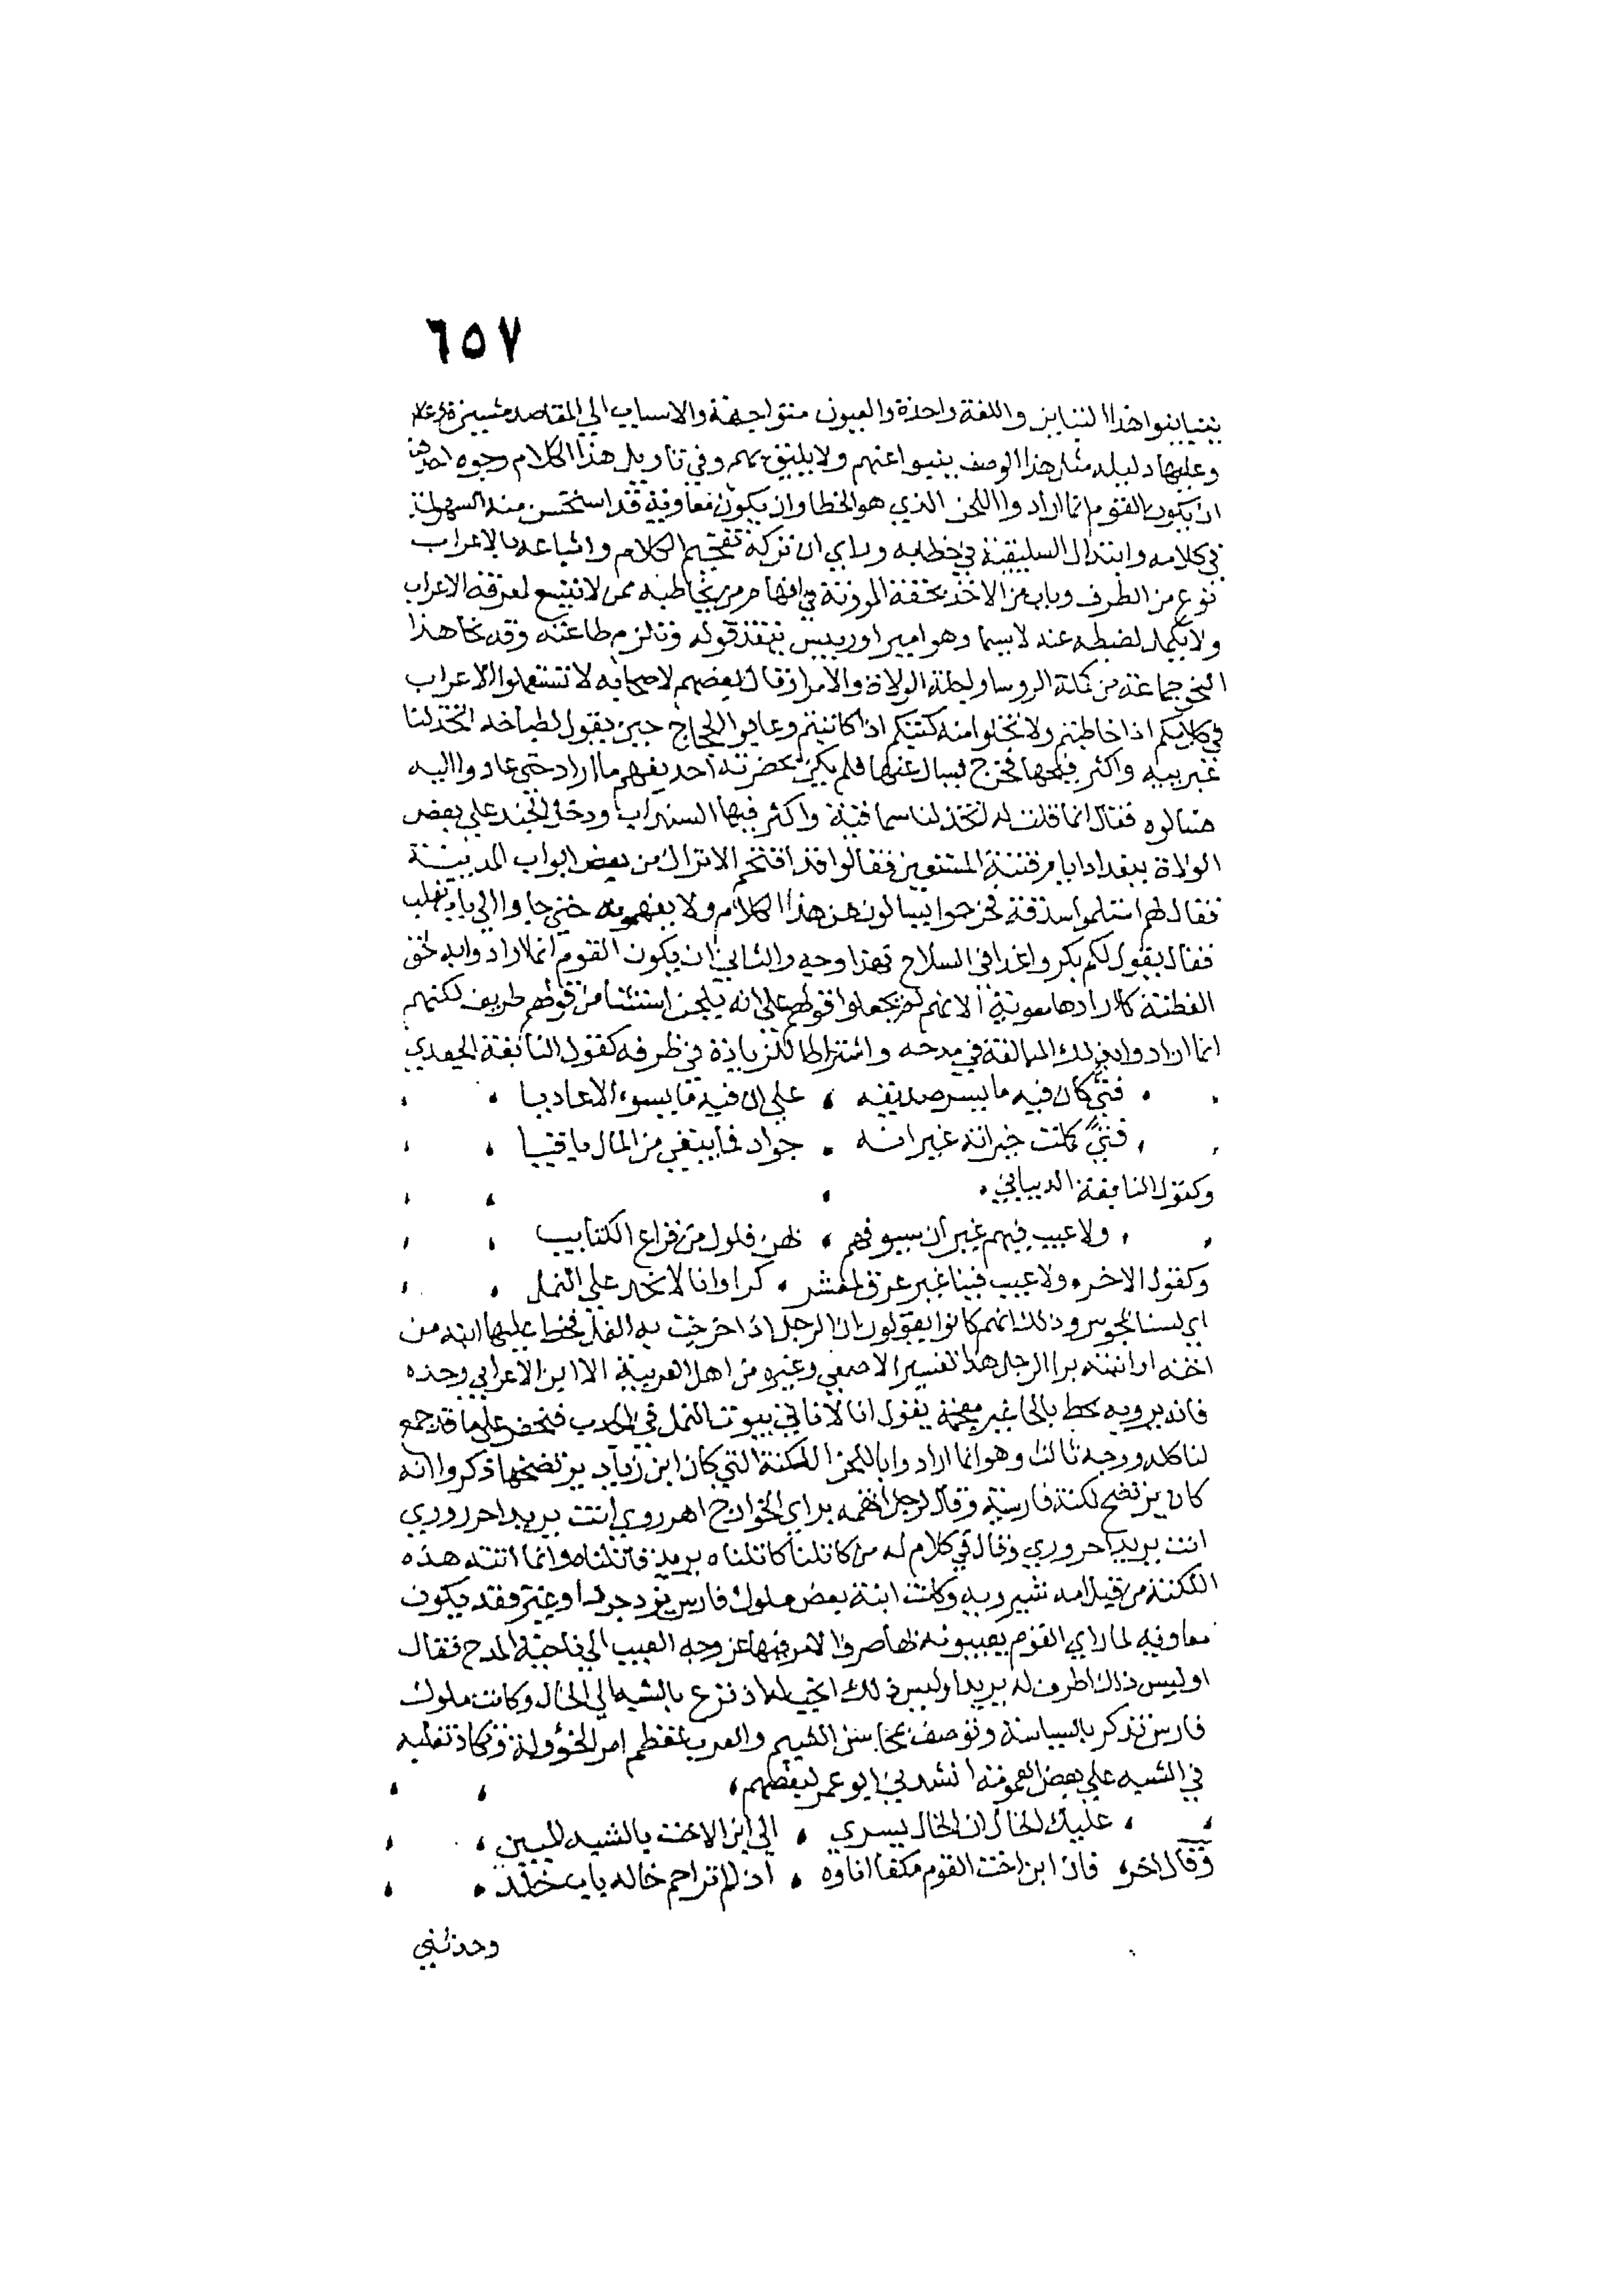 ٦٥٧
يتباينوا هذا التباين واللغة واحدة والعيون متواجهة والاسباب الي المقاصد مشيرة
وعليها دليله مثل هذا الوصف ينبوا عنهم ولا يليق بهم وفي تاويل هذا الكلام وجوه احدها
ان يكون القوم انما ارادوا اللحن الذي هو الخطا وان يكون معاوية قد استحسن منه السهولة
في كلامه وابتذال السليقية في خطابه وراي ان تركه تفخيم الكلام واشباعه بالاعراب
نوع من الظرف وباب من الاخذ بخفة المونة في افهام من يخاطبه ممن لا يتسع لمعرفة الاعراب
ولا يكمل لضبطه عند لا سيما وهو امير او رييس ينفذ قوله وتلزم طاعته وقد نحا هذا
النحو جماعة من الروسا وجلة الولاة والامرا وقال بعضهم لاصحابه لا تستعملوا الاعراب
في كلامكم اذا خاطبتم ولا تخلوا منه كتبكم اذا كاتبتم وعابوا الحجاج حين يقول لطباخه اتخذ لنا
غبربيه واكثر فيجها فخرج يسال عنها فلم يكن بحضرته احد يفهم ما اراد حتي عادوا اليه
فسالوه فقال انما قلت له لتخذ لنا سماقية واكثر فيها السذاب ودخل الجند علي بعض
الولاة ببغداد ايام فتنة المستعين فقالوا قد اقتحم الاتراك من بعض ابواب المدينة
فقال لهم استلموا سدفة فخرجوا يسالون عن هذا الكلام ولا يفهمونه حتي جاوا الي باب ثعلب
فقال يقول لكم بكروا غدا في السلاح فهذا وجه والثاني ان يكون القوم انما ارادوا به
الفطنة كما ارادها معوية الا انهم لم يجعلوا قولهم علي انه يلحن استثنا من قولهم ظريف لكنهم
انما ارادوا بذلك المبالغة في مدحه واشتراطا للزيادة في ظرفه كقول النابغة الجعدي
فتي كان فيه ما يسر صديقه ، علي ان فيه ما يسوء الاعاديا
فتي كملت خيراته غير انه . جواد فما يبقي من المال باقيا
وكقول النابغة الذبياني
ولا عيب فيهم غير ان سيوفهم ، بهن فلول من قراع الكتايب
وكقول الاخر ولا عيب فينا غير عرق لمعشر ، كرام وانا لا نخط علي النمل
اي لسنا بمجوس وذلك انهم كانوا يقولون ان الرجل اذا خرجت به النملة فخط عليها ابنه من
اخته او ابنته برا الرجل هذا تفسير الاصمعي وغيره من اهل العربية الا ابن الاعرابي وحده
فانه يرويه نحط بالحا غير معجمة يقول انا لا ناتي بيوت النمل في الجدب فنحفر علي ما قد جمع
لناكله ووجه ثالث وهو انما ارادوا باللحن اللكنة التي كان ابن زياد يرتضخها ذكروا انه
كان يرتضخ لكنة فارسية وقال لرجل اتهمه براي الخوارج اهروري انت يريد احروري
انت يريد احروري وقال في كلام له من كاتلنا كاتلناه يريد قاتلناه وانما اتته هذه
اللكنة من قبل امه شيرويه وكانت ابنة بعض ملوك فارس يزدجرد او غيره فقد يكون
معاويه لما راي القوم يعيبونه بها صرف الامر فيها عن وجه العيب الي ناحية المدح فقال
او ليس ذلك اظرف له يريد اوليس ذلك انجب له اذ نزع بالشبه الي الخال وكانت ملوك
فارس تذكر بالسياسة وتوصف بمحاسن الشيم والعرب تعظم امر الخؤولة وتكاد تغلبه
في الشبه علي بعض العمومة انشدني ابو عمر لبعضهم ،
عليك الخال ان الخال يسري ، الي ابن الاخت بالشبه المبين
وقال اخر ، فان ابن اخت القوم مكفا اناوه ، اذا لم تزاحم خاله باب جلد
وحدثني